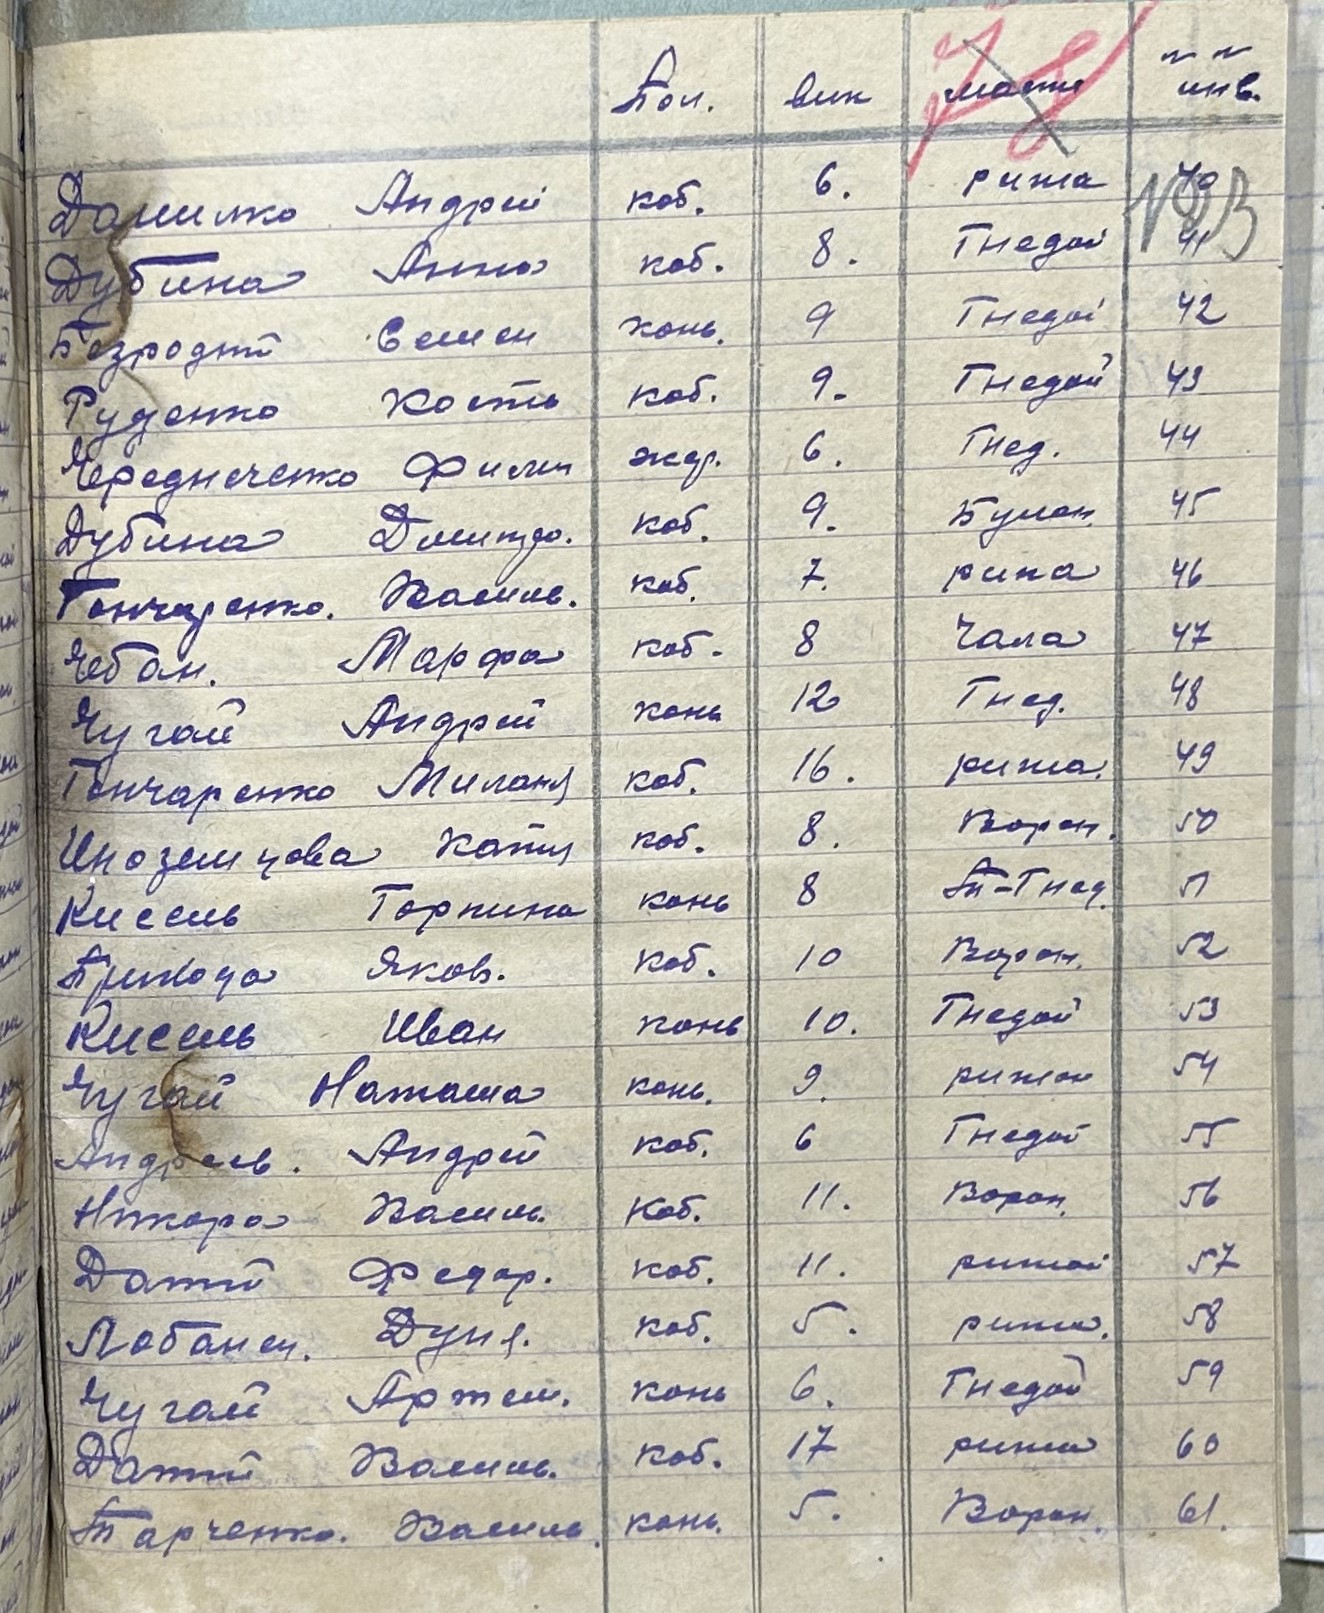 Пол. вик масть №№ инв.
78
193
Данилко Андрей коб. 6. рижа 40
Дубина Анна коб. 8. Гнедой 41
Безродний Семен конь. 9 Гнедой 42
Руденко Кость коб. 9. Гнедой 43
Чередниченко Филип жер. 6. Гнед. 44
Дубина Дмитро. коб. 9. Булан. 45
Гончаренко. Василь. коб. 7. рижа 46
Чебан. Марфа коб. 8 Чала 47
Чугай Андрей конь 12 Гнед. 48
Гончаренко Миланя коб. 16. рижа. 49
Иноземцова Катя коб. 8. Ворон. 50
Кисель Горпина конь 8 Т-Гнед. 51
Приходо Яков. коб. 10 Ворон. 52
Кисель Иван конь 10. Гнедой 53
Чугай Наташа конь. 9. рижой 54
Андреев. Андрей коб. 6 Гнедой 55
Василь. Коб. 11. Ворон. 56
Датий Федор. коб. 11. рижой 57
Лобанен. Дуня. коб. 5. рижа. 58
Чугай Артем. конь 6. Гнедой 59
Датий Василь. коб. 17 рижа 60
Тарченко. Василь. конь. 5. Ворон. 61.